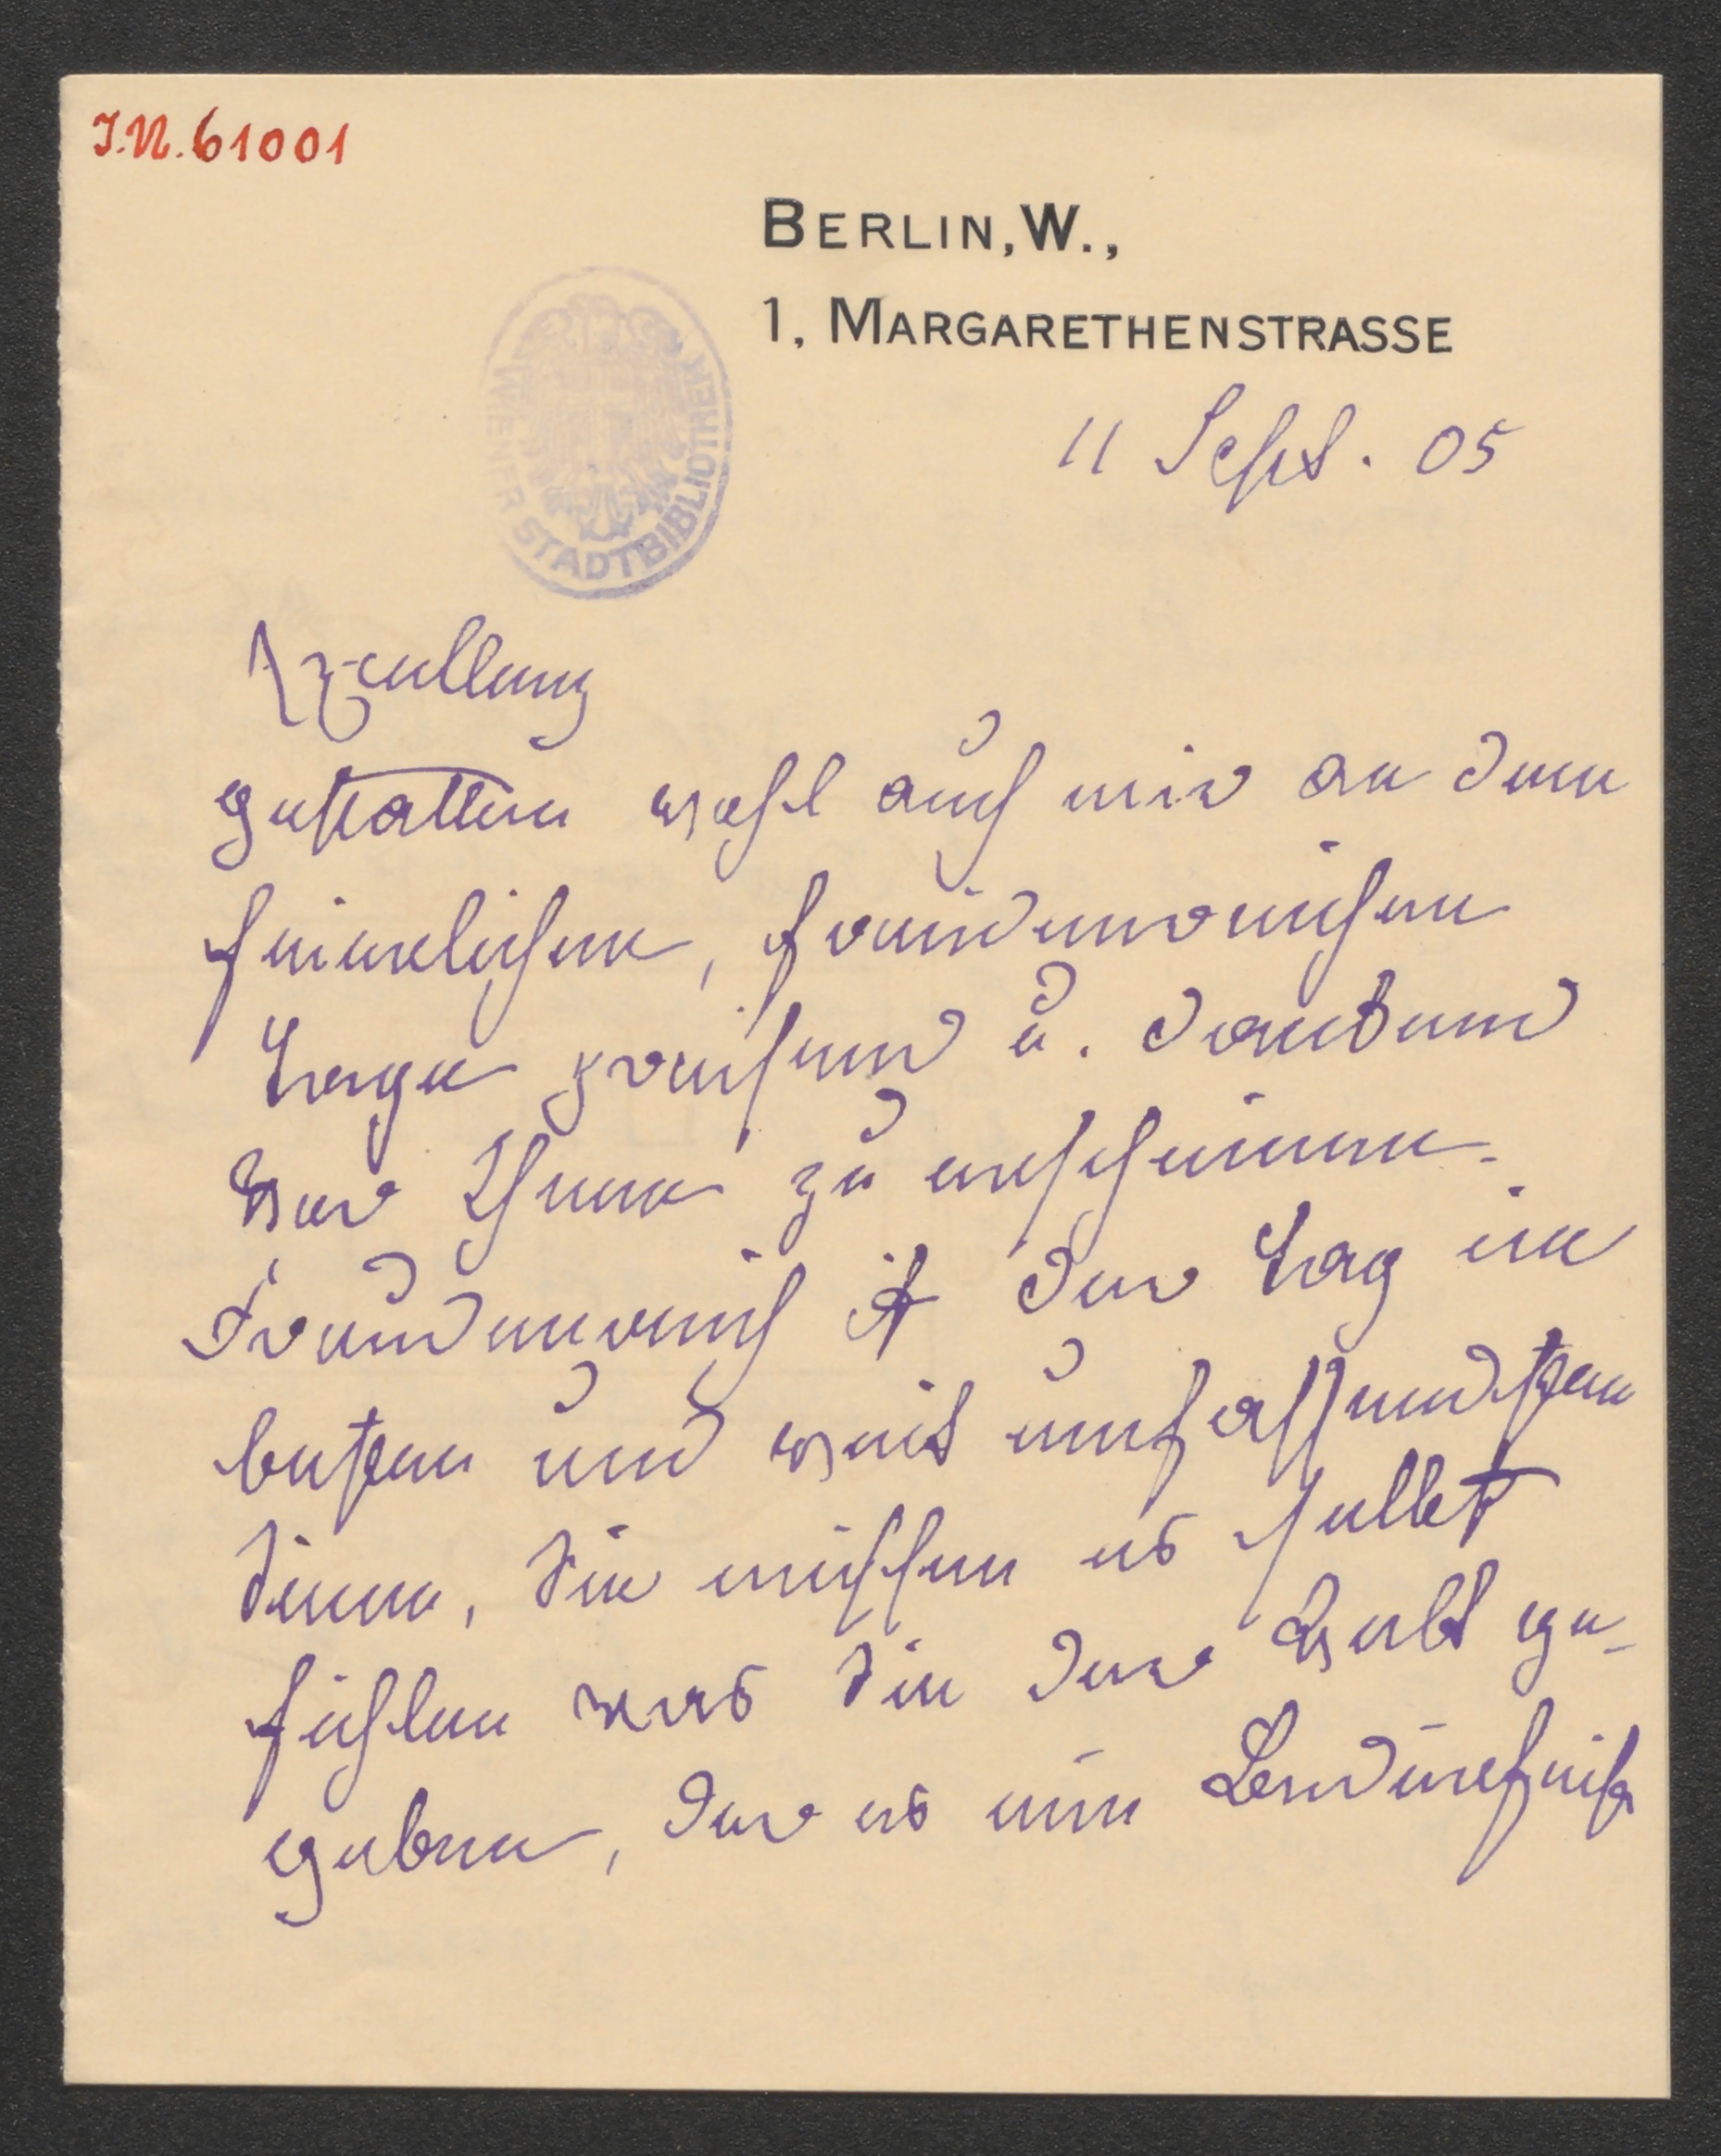 I.N. 61001
BERLIN, W.,
1, MARGARETHENSTRASSE
WIENER STADTBIBLIOTHEK
11 Sept. 05
Excellenz
gestatten wohl auch mir an dem
feierlichen, freudenreichen
Tage preisend u. dankend
vor Ihnen zu erscheinen.
Freudenreich ist der Tag im
besten und weit umfassendsten
Sinne, Sie müssen es selbst
fühlen was Sie der Welt ge-
geben, der es ein Bedürfniß